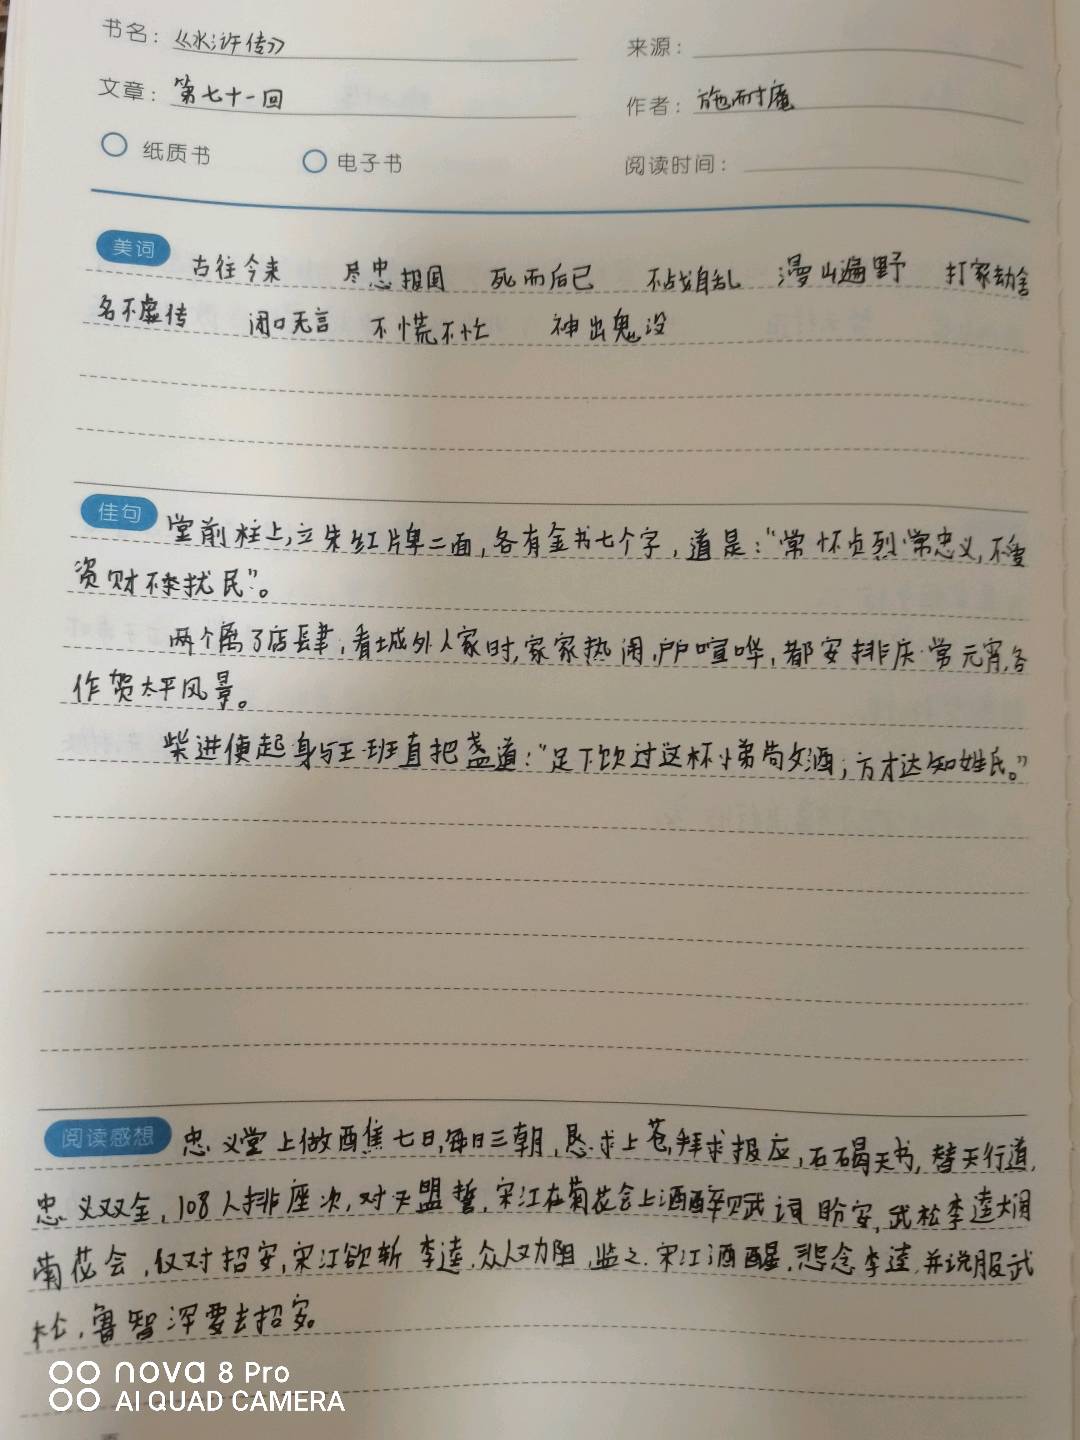 书名：《水浒传》
来源：
文章：第七十一回
作者：施耐庵
纸质书 电子书
阅读时间：
美词 古往今来 尽忠报国 死而后已 不战自乱 漫山遍野 打家劫舍
名不虚传 闭口无言 不慌不忙 神出鬼没
佳句 堂前柱上,立朱红牌二面,各有金书七个字,道是:"常怀贞烈常忠义,不爱
资财不扰民"。
两个离了店肆,看城外人家时,家家热闹,户户喧哗,都安排庆赏元宵,各
作贺太平风景。
柴进便起身与王班直把盏道:"足下饮过这杯小弟敬酒,方才达知姓氏。"
阅读感想 忠义堂上做醮七日,每日三朝,恳求上苍,拜求报应,石碣天书,替天行道,
忠义双全,108人排座次,对天盟誓,宋江在菊花会上酒醉赋词盼安,武松李逵大闹
菊花会,仅对招安,宋江欲斩李逵,众人力阻,监之.宋江酒醒,悲念李逵,并说服武
松,鲁智深要去招安。
nova 8 Pro
AI QUAD CAMERA